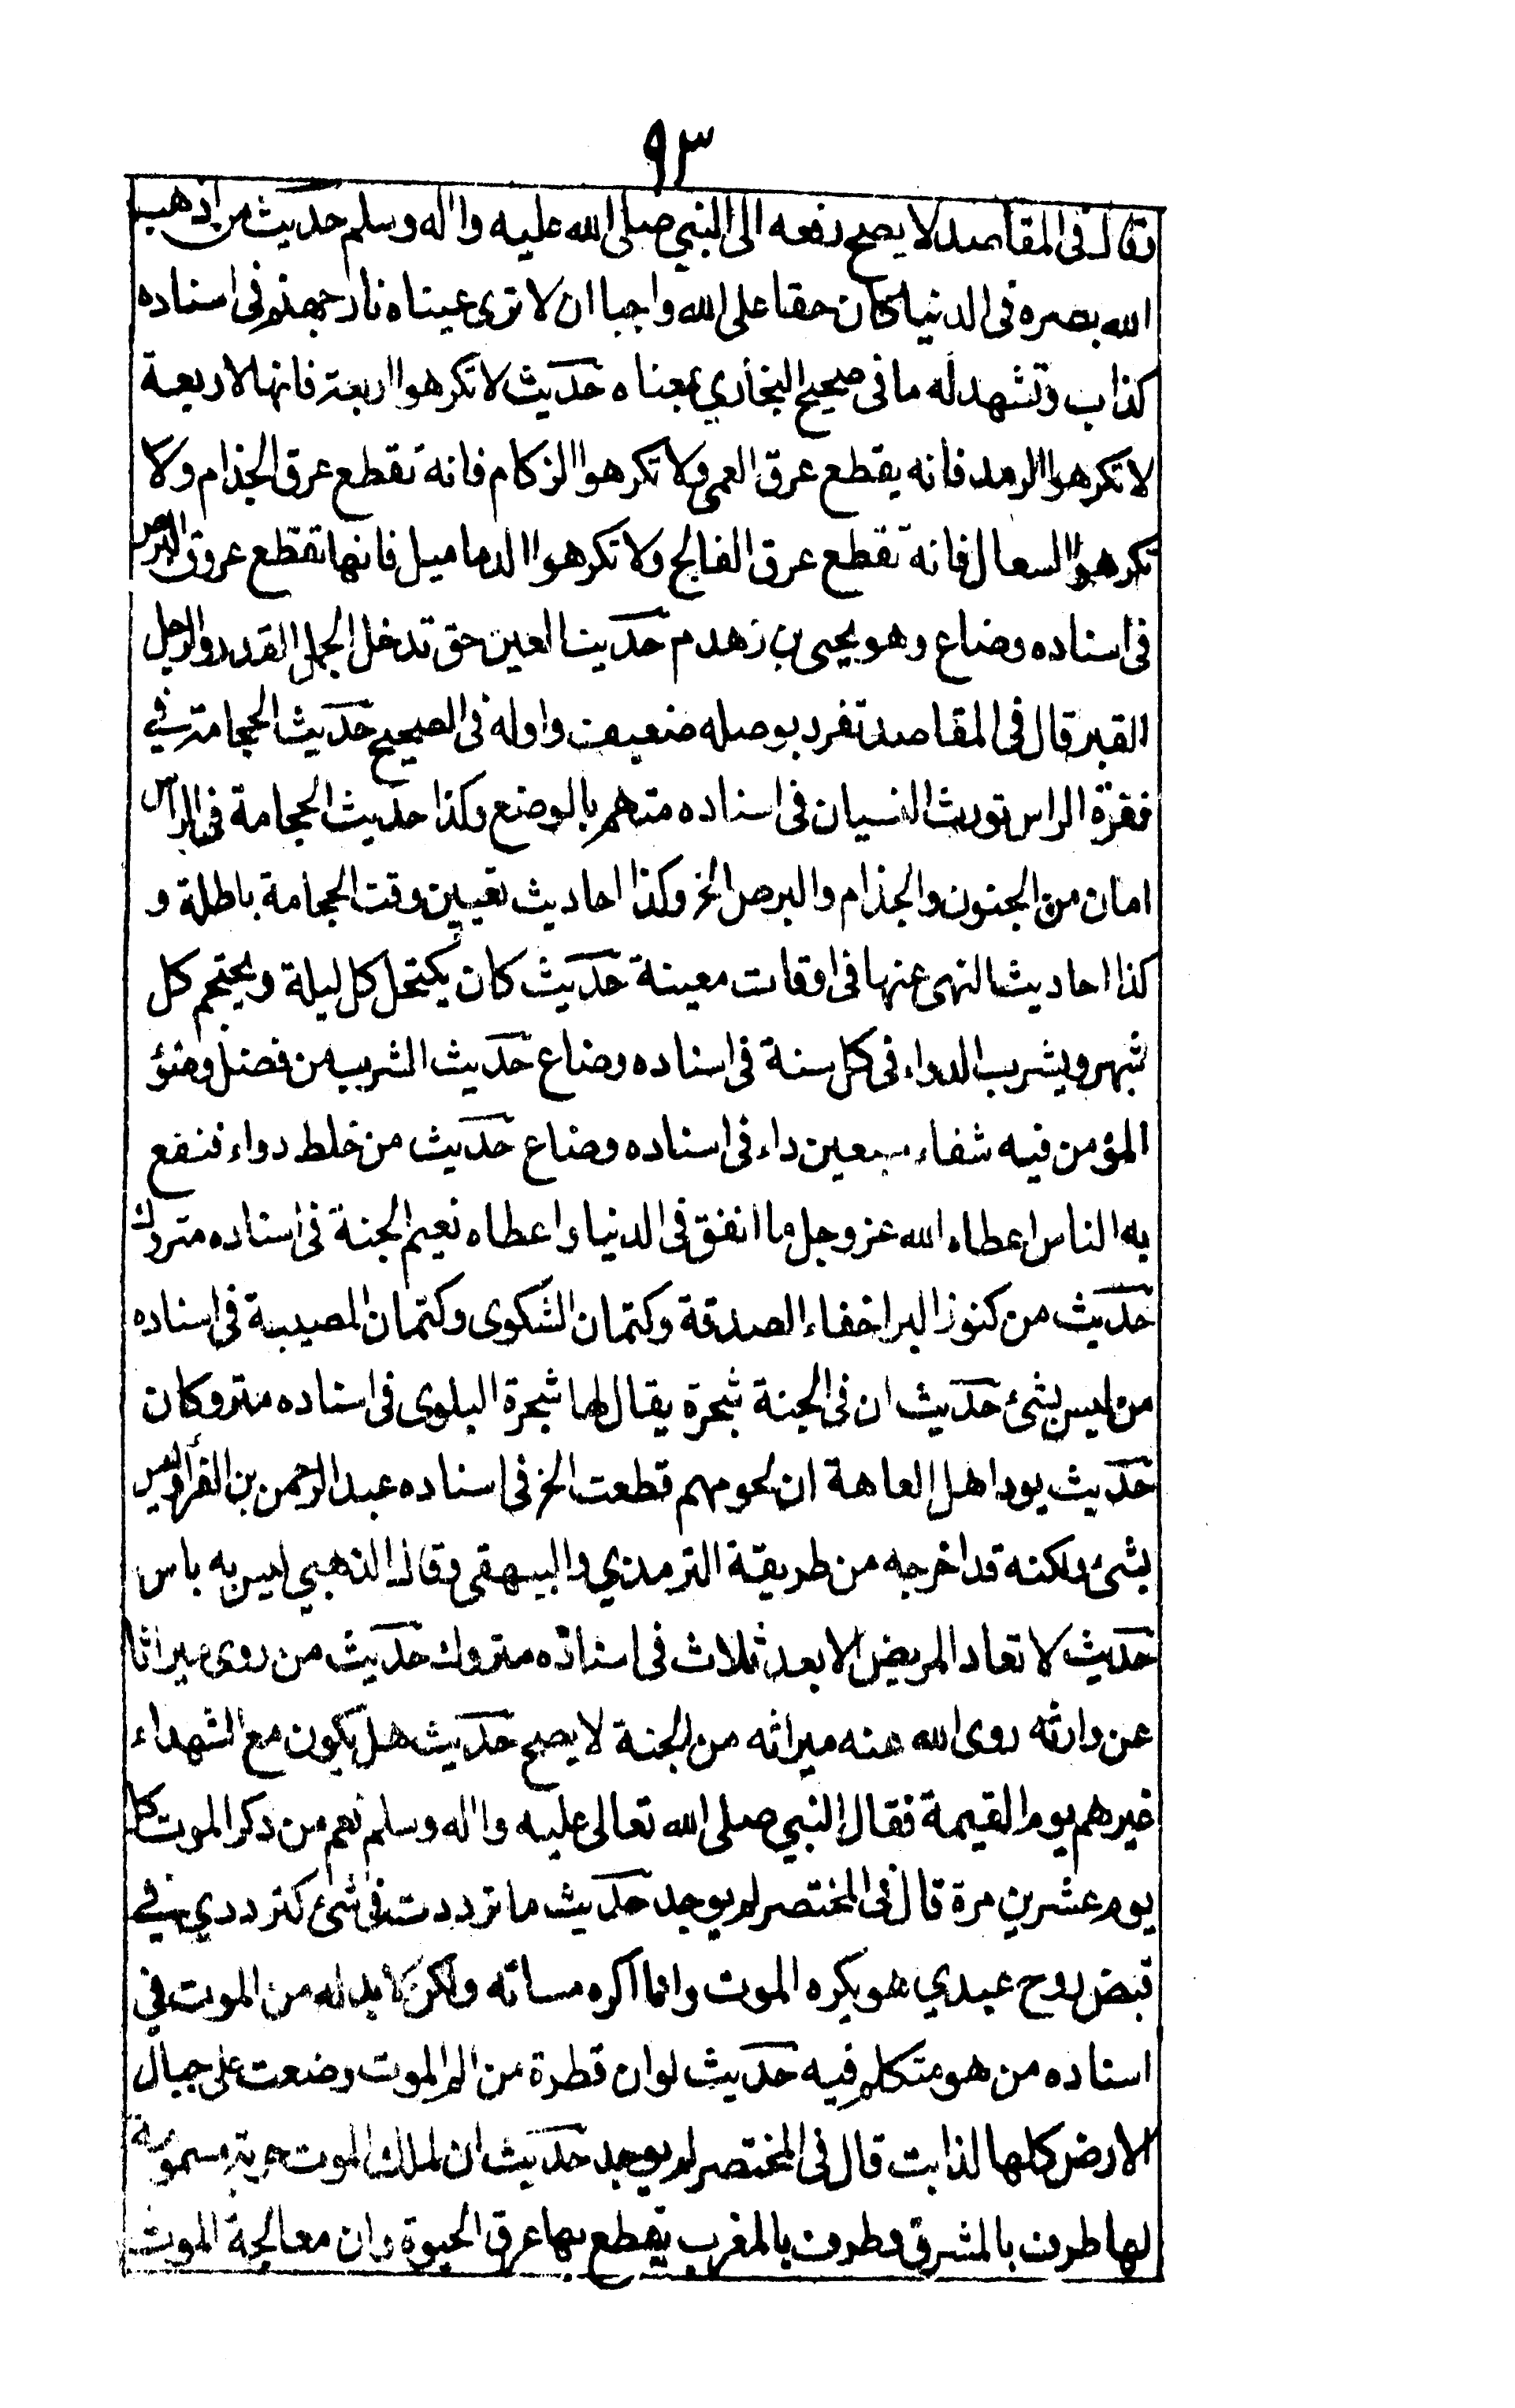 ٩٣
وقال فى المقاصد لا يصح رفعه الى النبي صلى الله عليه واله وسلم حديث من اذهب
الله بصره فى الدنيا كان حقا على الله واجبا ان لا ترى عيناه نار جهنم فى اسناده
كذاب وتشهد له ما فى صحيح البخاري بمعناه حديث لا تكرهوا اربعة فانها لاربعة
لا تكرهوا الرمد فانه يقطع عرق العمى ولا تكرهوا الزكام فانه تقطع عرق الجذام ولا
تكرهوا السعال فانه تقطع عرق الفالج ولا تكرهوا الدماميل فانها تقطع عروق البرص
فى اسناده وضاع وهو يحيى بن زهدم حديث العين حق تدخل الجمل القدر والرجل
القبر قال فى المقاصد تفرد بوصله ضعيف واوله فى الصحيح حديث الحجامة في
فقرة الراس تورث النسيان فى اسناده متهم بالوضع وكذا حديث الحجامة فى الراس
امان من الجنون والجذام والبرص الخ وكذا احاديث تعيين وقت الحجامة باطلة و
كذا احاديث النهى عنها فى اوقات معينة حديث كان يكتحل كل ليلة ويحتجم كل
شهر ويشرب الدواء فى كل سنة فى اسناده وضاع حديث الشرب من فضل وضوء
المؤمن فيه شفاء سبعين داء فى اسناده وضاع حديث من خلط دواء فنفع
به الناس اعطاه الله عز وجل ما انفق فى الدنيا واعطاه نعيم الجنة فى اسناده متروك
حديث من كنوز البر اخفاء الصدقة وكتمان الشكوى وكتمان المصيبة فى اسناده
من ليس بشئ حديث ان فى الجنة شجرة يقال لها شجرة البلوى فى اسناده متروكان
حديث يود اهل العاهة ان لحومهم قطعت الخ فى اسناده عبد الرحمن بن الفرا وليس
بشئ ولكنه قد اخرجه من طريقة الترمذي والبيهقى وقال الذهبي ليس به باس
حديث لا تعاد المريض الا بعد ثلاث فى اسناده متروك حديث من روى ميراثا
عن وارثه روى الله عنه ميراثه من الجنة لا يصح حديث هل يكون مع الشهداء
غيرهم يوم القيمة فقال النبي صلى الله تعالى عليه واله وسلم نعم من ذكر الموت كل
يوم عشرين مرة قال فى المختصر لم يوجد حديث ما ترددت فى شئ كترددي في
قبض روح عبدي هو يكره الموت وانا اكره مساته ولكن لا بد له من الموت في
اسناده من هو متكلم فيه حديث لو ان قطرة من الم الموت وضعت على جبال
الارض كلها لذابت قال فى المختصر لم يوجد حديث ان لملك الموت حربة مسمومة
لها طرف بالمشرق وطرف بالمغرب يقطع بها عرق الحيوة وان معالجة الموت